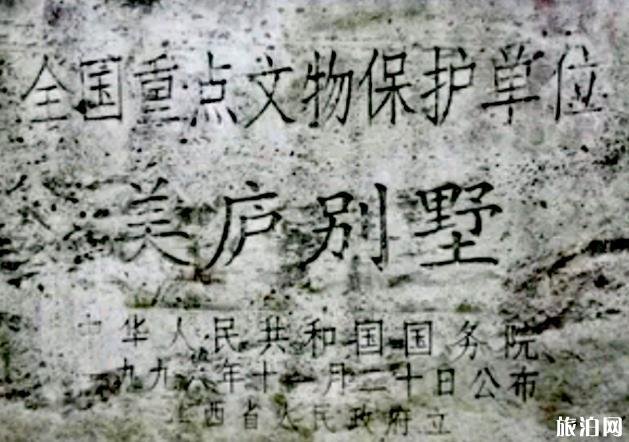 全国重点文物保护单位
美庐别墅
中华人民共和国国务院
一九九六年十一月二十日公布
江西省人民政府立
旅泊网